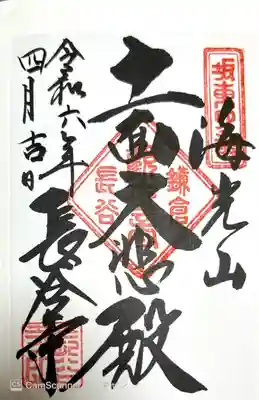 坂東四番
海光山
十一面大悲殿
鎌倉
長谷
長谷寺
令和六年
四月吉日
CS CamScanner